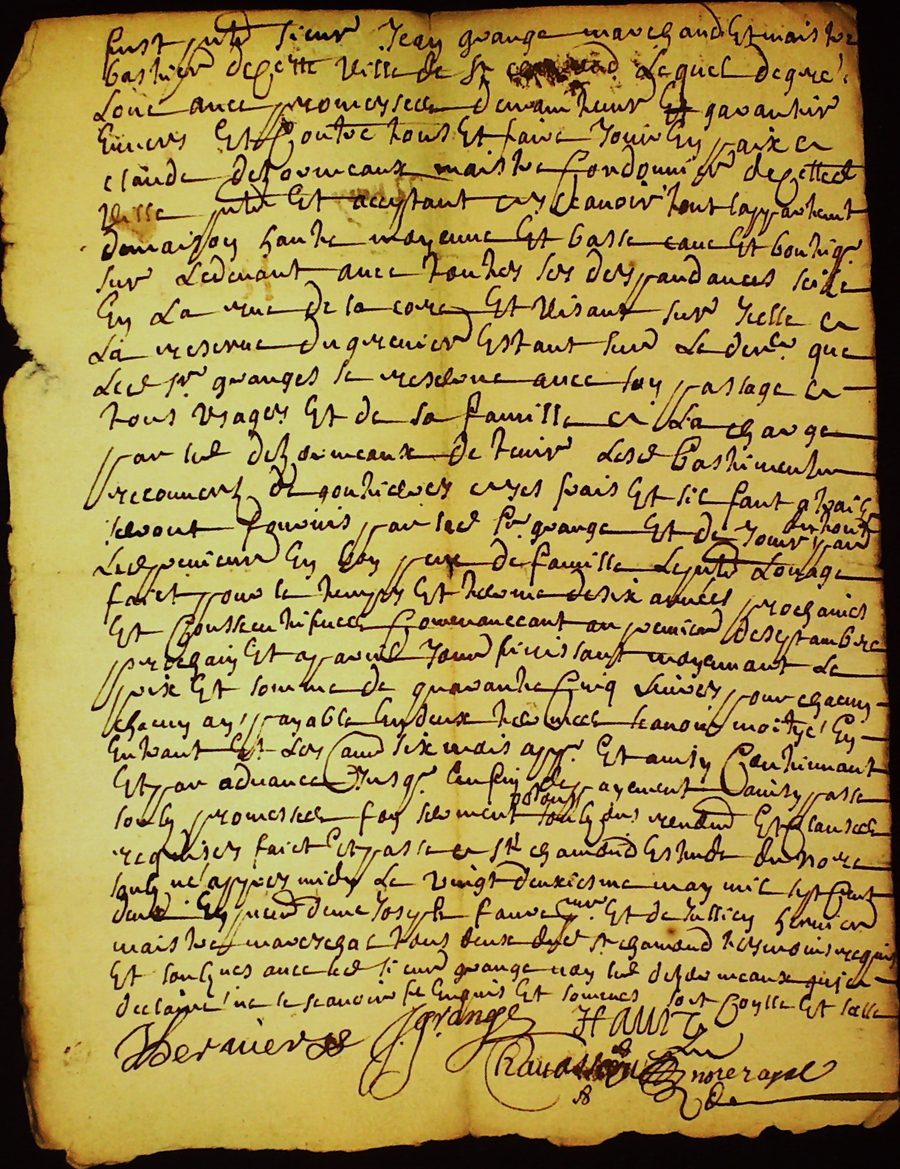 Fust pnt sieur Jean grange marchand Et maistre
bastier de Cette ville de St chamond Lequel de gre
Loue avec promesses de maintenir Et garantir
Envers Et Contre tous Et faire Jouir En paix a
claude deshormeaux maistre Cordonnier de Cette d
ville pnt Et acceptant a scavoir tout lappartement
de maison haute moyenne Et basse cave Et boutiq
sur Le devant avec toutes ses despandances size
En La rue de la Et visant sur Icelle a
La reserve du grenier Estant sur Le que
Led Sr granges se reserve avec son passage a
tous usages Et de sa famille a La charge
par led deshormeaux de tenir Lesd bastiments
recouvert de goutieres a ses frais Et sil faut
seront fournis par led Sr grange Et de Jouir par
Led preneur En bon pere de famille Le pnt Louage
faict pour le temps Et terme de six annees prochaines
Et Consecutifves Commencant au premier de septambre
prochain Et a pareil Jour finissant moyennant Le
prix Et somme de quarante Cinq livres pour chacun
chacun an payable En deux termes scavoir moitye En
Entrant Et Lors six mois app Et ainsy Continuant
Et par advance Jusq En fin de payement ainsy passe
soubs promesses foy serment Et Clauses
requises faict Et passe a St chamond Estude du Nore
soubne appres midy Le vingt deuxiesme may mil sept Cent
deux En pnce de me Joseph faure Et de Jullien hernier
maistre mareschal tous deux dud St chamond tesmoins requis
Et soubnes avec led sieur grange non led deshormeaux qui a
declaire ne le scavoir de Enquis Et somme Et
Hernier JGrange
nore royal